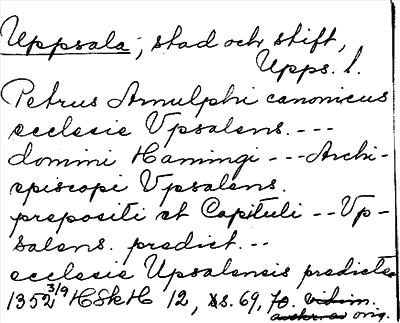 Uppsala; stad och stift,
Upps. l.
Petrus Arnulphi canonicus
ecclesie Vpsalens. ---
domini Hamingi --- Archi-
episcopi Vpsalens.
prepositi et Capituli -- Vp-
salens. predict. --
ecclesie Upsalensis predicte
1352 3/9 HSkH 12, s. 69, 70. vidim. orig.